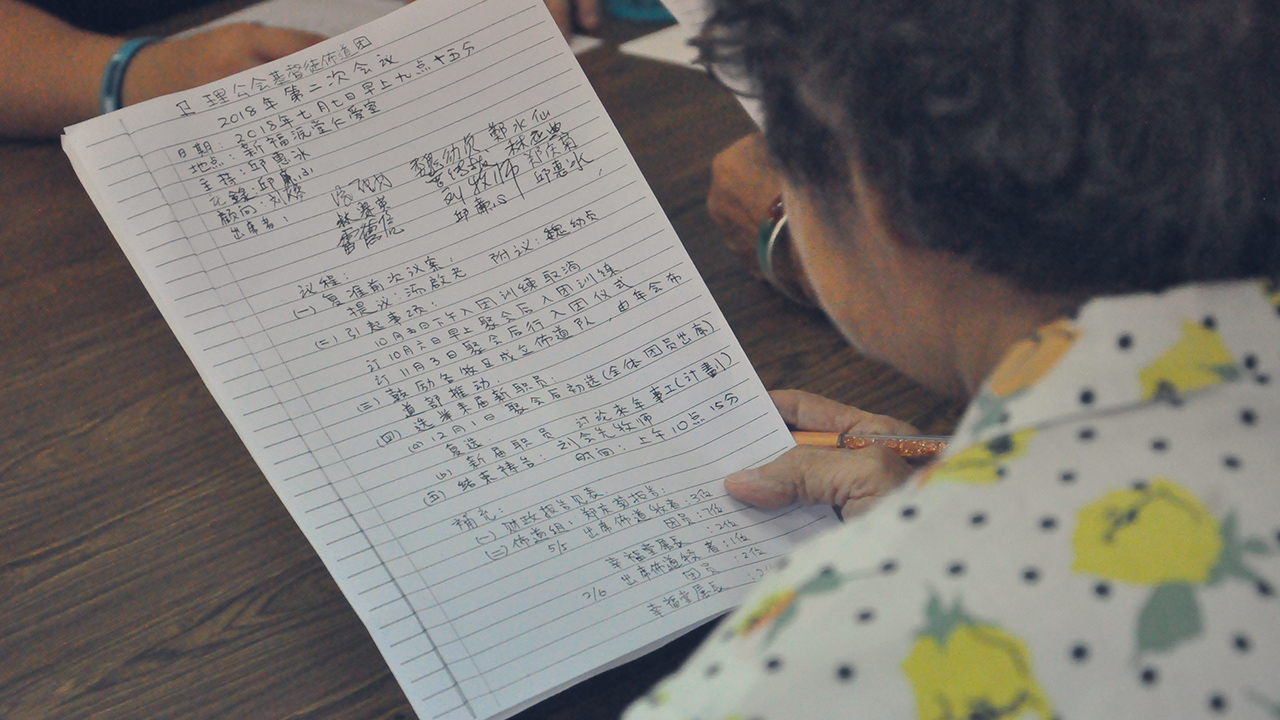 卫理公会基督徒佈道团
2018年第二次会议
日期：2018年七月七日早上九点十五分
地点：新福源堂仁爱室
主持：邱惠冰
记录：邱
顾问：刘
出席者： 魏幼贞 郑水仙
刘牧师
邱惠冰
议程：
(一) 复准前次议案：
提议：汤啟光 附议：魏幼贞
(二) 引起事项：
10月 日下午入团训练取消
订10月六日早上聚会后入团训练
订11月3日聚会后行入团仪式
(三) 鼓励各牧区成立佈道队，由年会布
道部推动。
(四) 选举来届新职员：
(a) 12月1日聚会后初选(全体团员出席)
复选
(b) 新届职员 讨论来年事工(计劃)
(五) 结束祷告：刘会光牧师
时间：上午10点15分
补充：
(一) 财政报告见表
(二) 佈道组：郑庆菊报告：
5/5 出席佈道牧者：3位
团员：7位
幸福堂展長：2位
2/6 出席佈道牧者：1位
团员：2位
幸福堂展長：